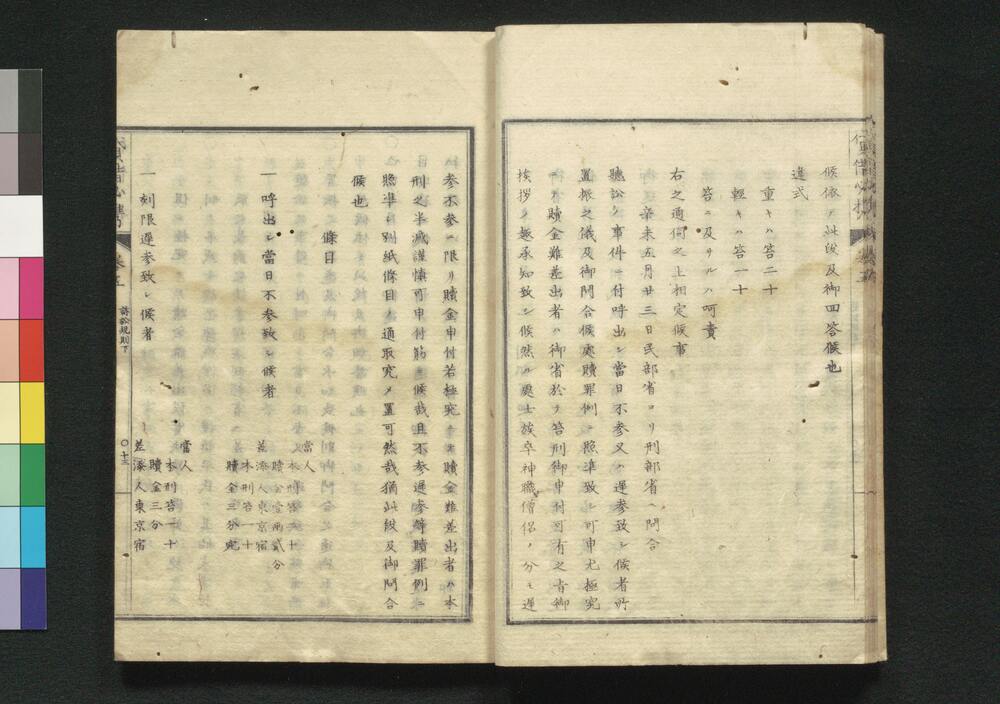 候依ノ此段及御回答候也
違式
重キハ笞二十
輕キハ笞一十
笞ニ及サルハ呵責
右之通伺之上相定候事
辛未五月廿三日民部省ヨリ刑部省ヘ問合
聽訟ノ事件ニ付呼出シ當日不参又ハ遅参致シ候者所
置振之儀及御問合候處贖罪例ニ照準致シ可申尤極究
ニテ贖金難差出者ハ御省於テ笞刑御申付可有之旨御
挨拶ノ趣承知致シ候然ル處士族卒神職僧侶ノ分モ遅
参不参ニ限リ贖金申付若極究ニテ贖金難差出者ハ本
刑之半減謹慎可申付筋ニ候哉且不参遅参等贖罪例ニ
照準シ別紙條目ノ通取究メ置可然哉猶此段及御問合
候也
條目
一 呼出シ當日不参致シ候者
當人
本刑笞二十
贖金壹両貳分
差添人東京宿
本刑笞一十
贖金三分宛
一 刻限遅参致シ候者
當人
本刑笞一十
贖金三分
差添人東京宿
訴訟規則下
〇十三